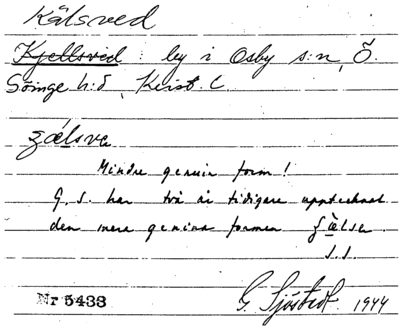 Kälsved
Kjellsved by i Osby s:n, Ö.
Göinge h:d, Krist. l.
Mindre genuin form!
G. S. har två år tidigare upptecknat
den mera genuina formen
S.S.
Nr 5433 G. Sjöstedt 1944